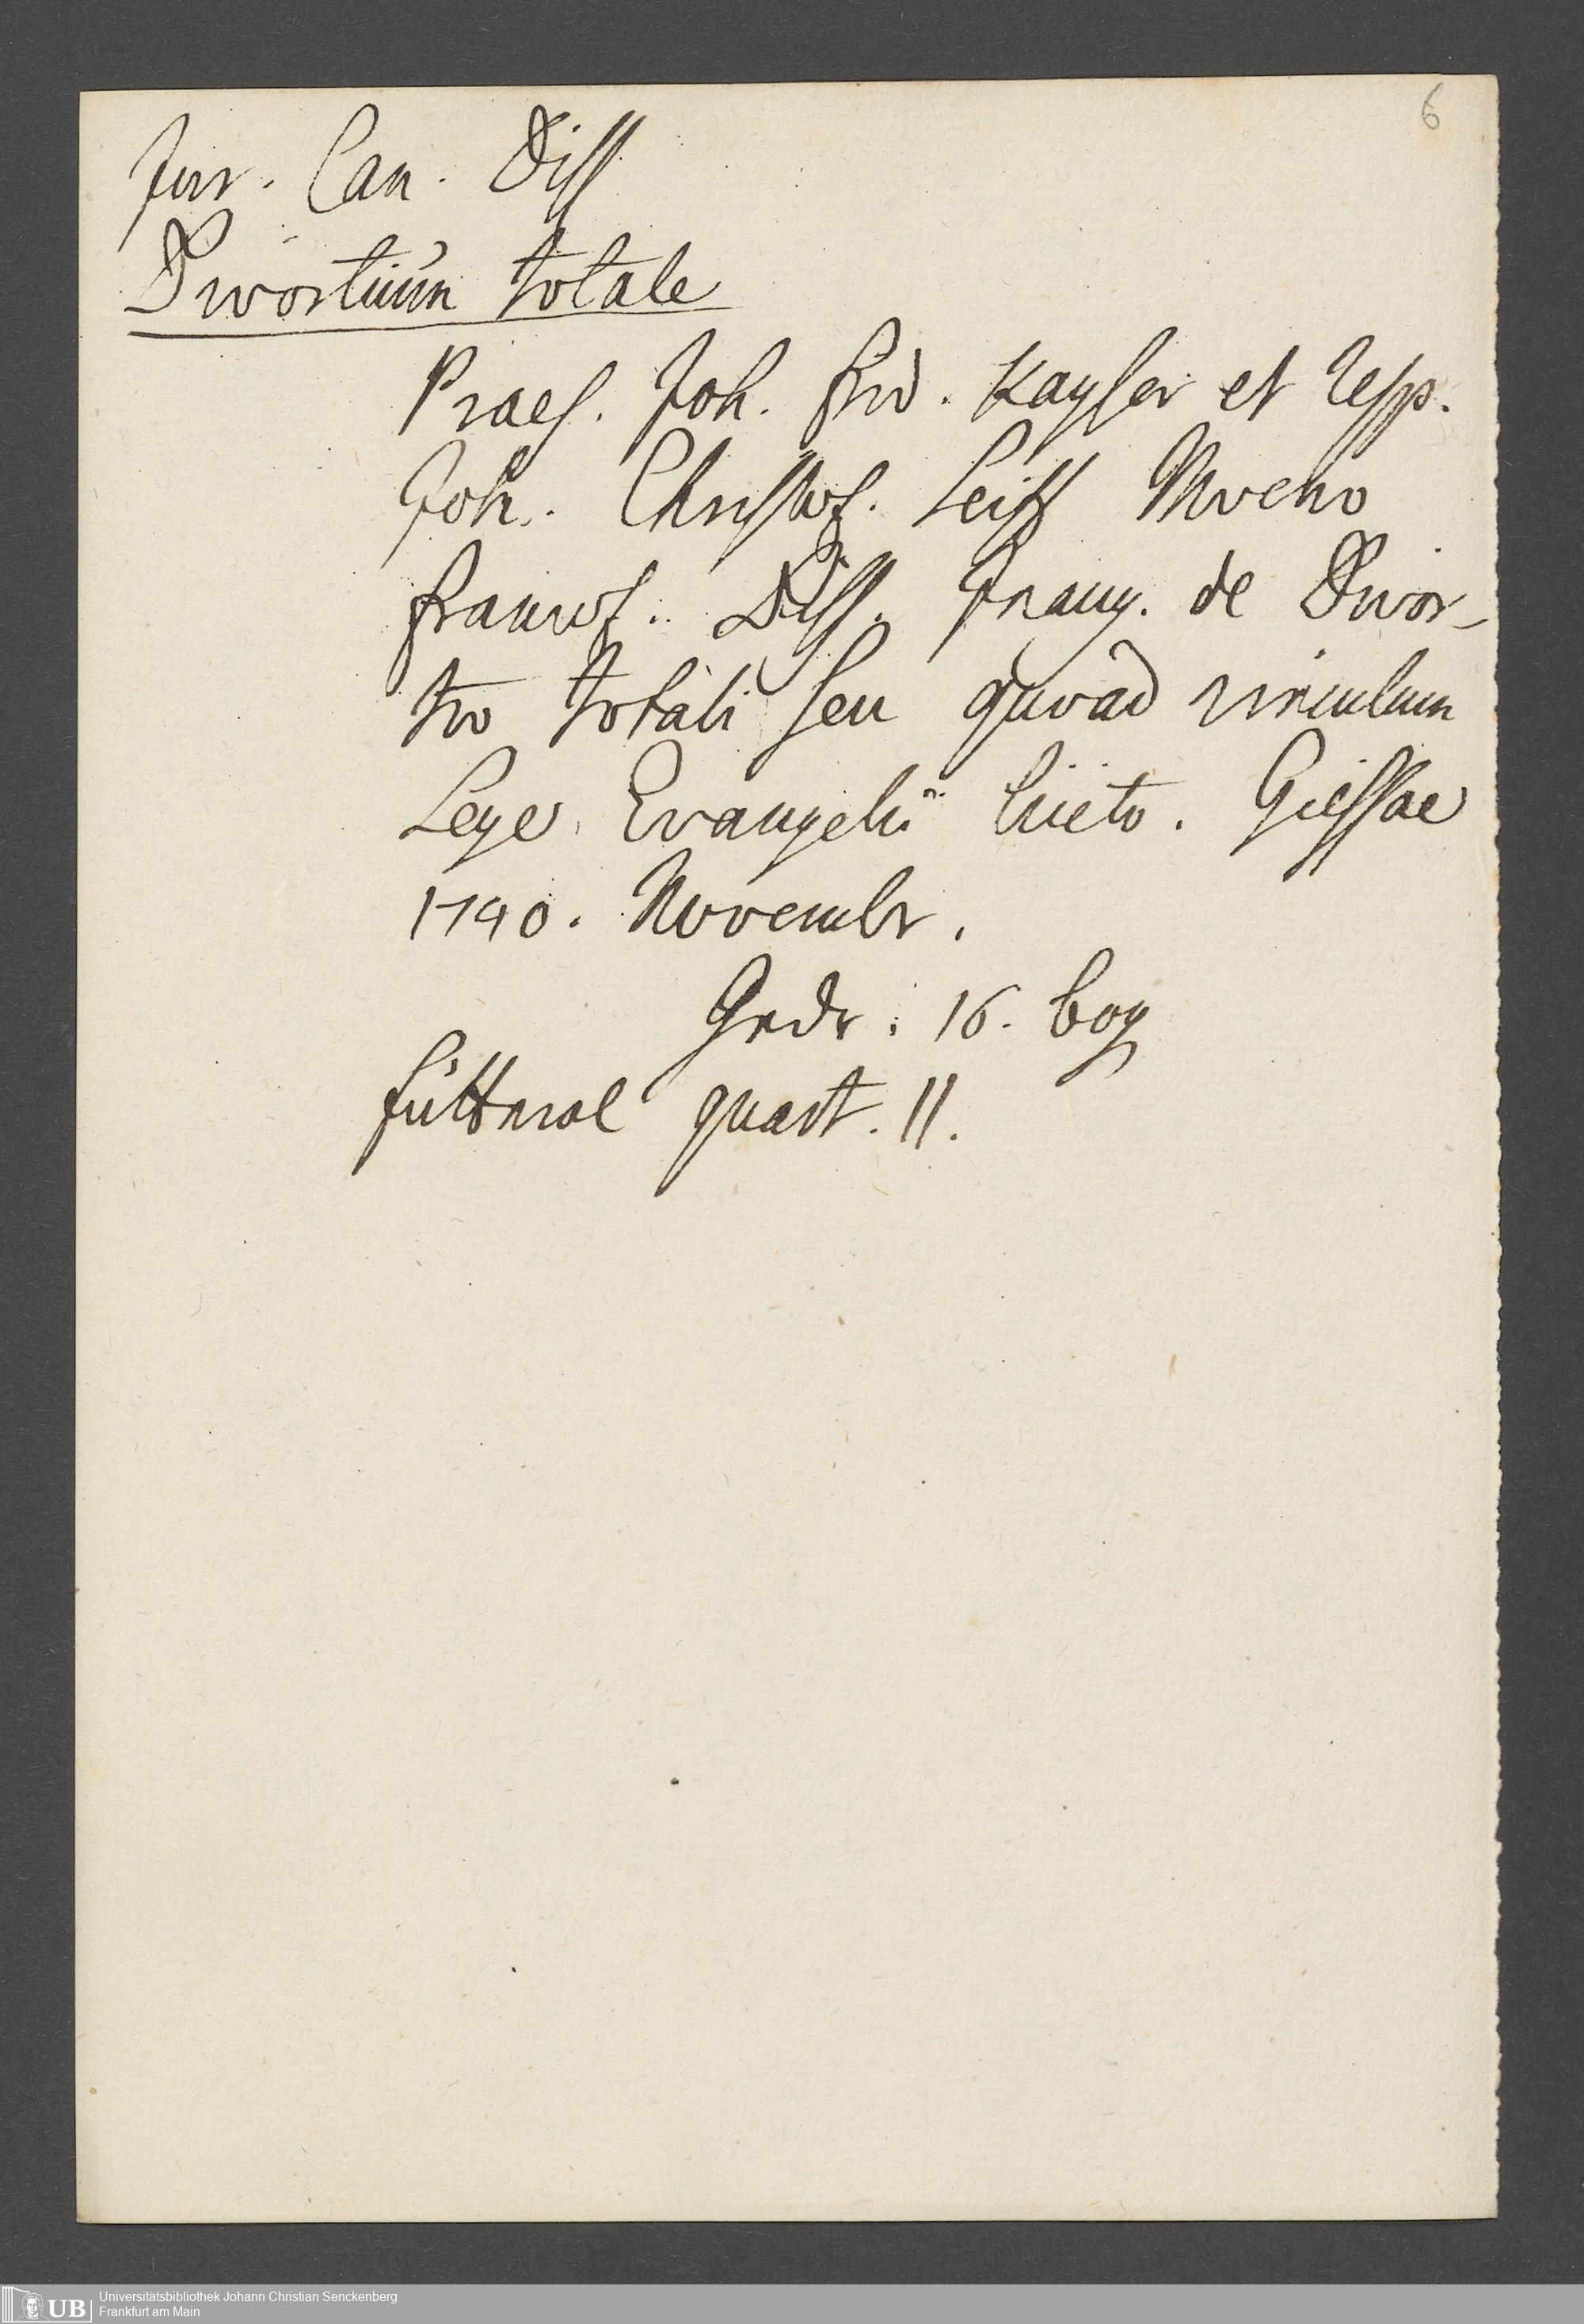 6
Jur. Can. Diss
Divortium totale
Praes. Joh. Frid. Kayser et Resp.
Joh. Christof. Seiff Moeno
Francof. Diss. Inaug. de Divor-
tio totali seu quoad vinculum
Lege Evangelii licito. Giessae
1740. Novembr.
Gedr. 16. bog
Futteral quart. 11.
UB Universitätsbibliothek Johann Christian Senckenberg
Frankfurt am Main